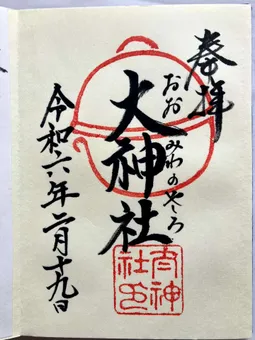 奉拝
おお みわのやしろ
大神社
令和六年二月十九日
大神
社印